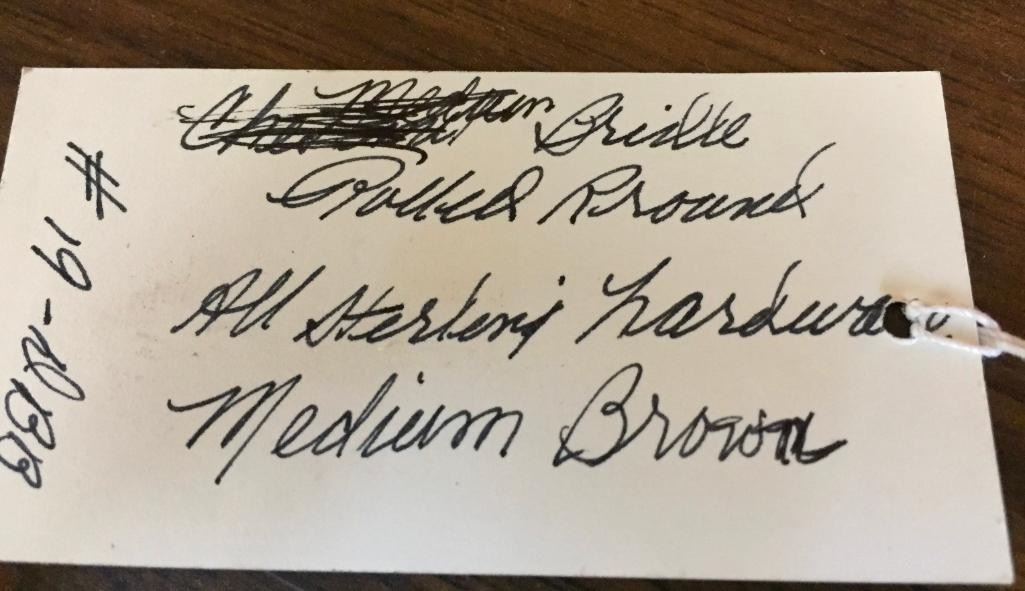 Medium Bridle
Rolled Round
All Sterling hardware
Medium Brown